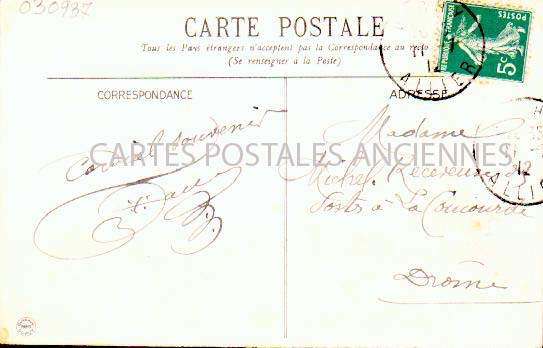 030937
CARTE POSTALE
Tous les Pays étrangers n'acceptent pas la Correspondance au recto
(Se renseigner à la Poste)
REPUBLIQUE FRANÇAISE
POSTES
5c
11
12
ALLIER
CORRESPONDANCE
ADRESSE
Cordial souvenir
Madame
Michel Receveuse des
Postes à La Coucourde
Drôme
12
ALLIER
CARTES POSTALES ANCIENNES